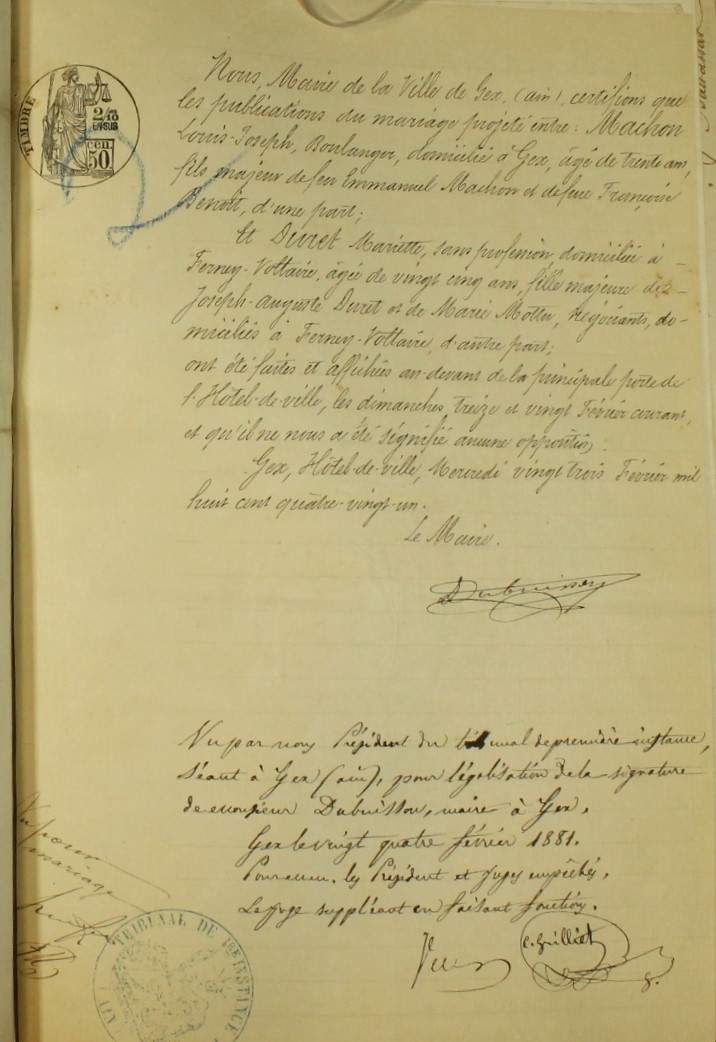 TIMBRE
2/10
EN SUS
CEN
50
Nous, Maire de la Ville de Gex, (ain), certifions que
les publications du mariage projété entre: Machon
Louis-Joseph, Boulanger, domicilié à Gex, âgé de trente ans,
fils majeur de feu Emmanuel Machon et de feue Françoise
Benoit, d'une part;
Et Duret Mariette, sans profession, domiciliée à
Ferney-Voltaire, âgée de vingt cinq ans, fille majeure de
Joseph-auguste Duret et de Marie Mottu, négociants, do-
miciliés à Ferney-Voltaire, d'autre part;
ont été faites et affichées au-devant de la principale porte de
l'Hôtel-de-ville, les dimanches, treize et vingt Février courant,
et qu'il ne nous a été ségnifié aucune opposition.
Gex, Hôtel-de-ville, Mercredi vingt trois Février mil
huit cent quatre-vingt-un.
Le Maire.
Dubuisson
Vu par nous Président du tribunal de première instance,
séant à Gex (ain), pour légalisation de la signature
de monsieur Dubuisson, maire à Gex.
Gex le vingt quatre février 1881.
Pour les Président et Juges empêchés,
Le Juge suppléant en faisant fonctions.
C. Grilliet
Vu pour
mariage
TRIBUNAL DE 1ERE INSTANCE